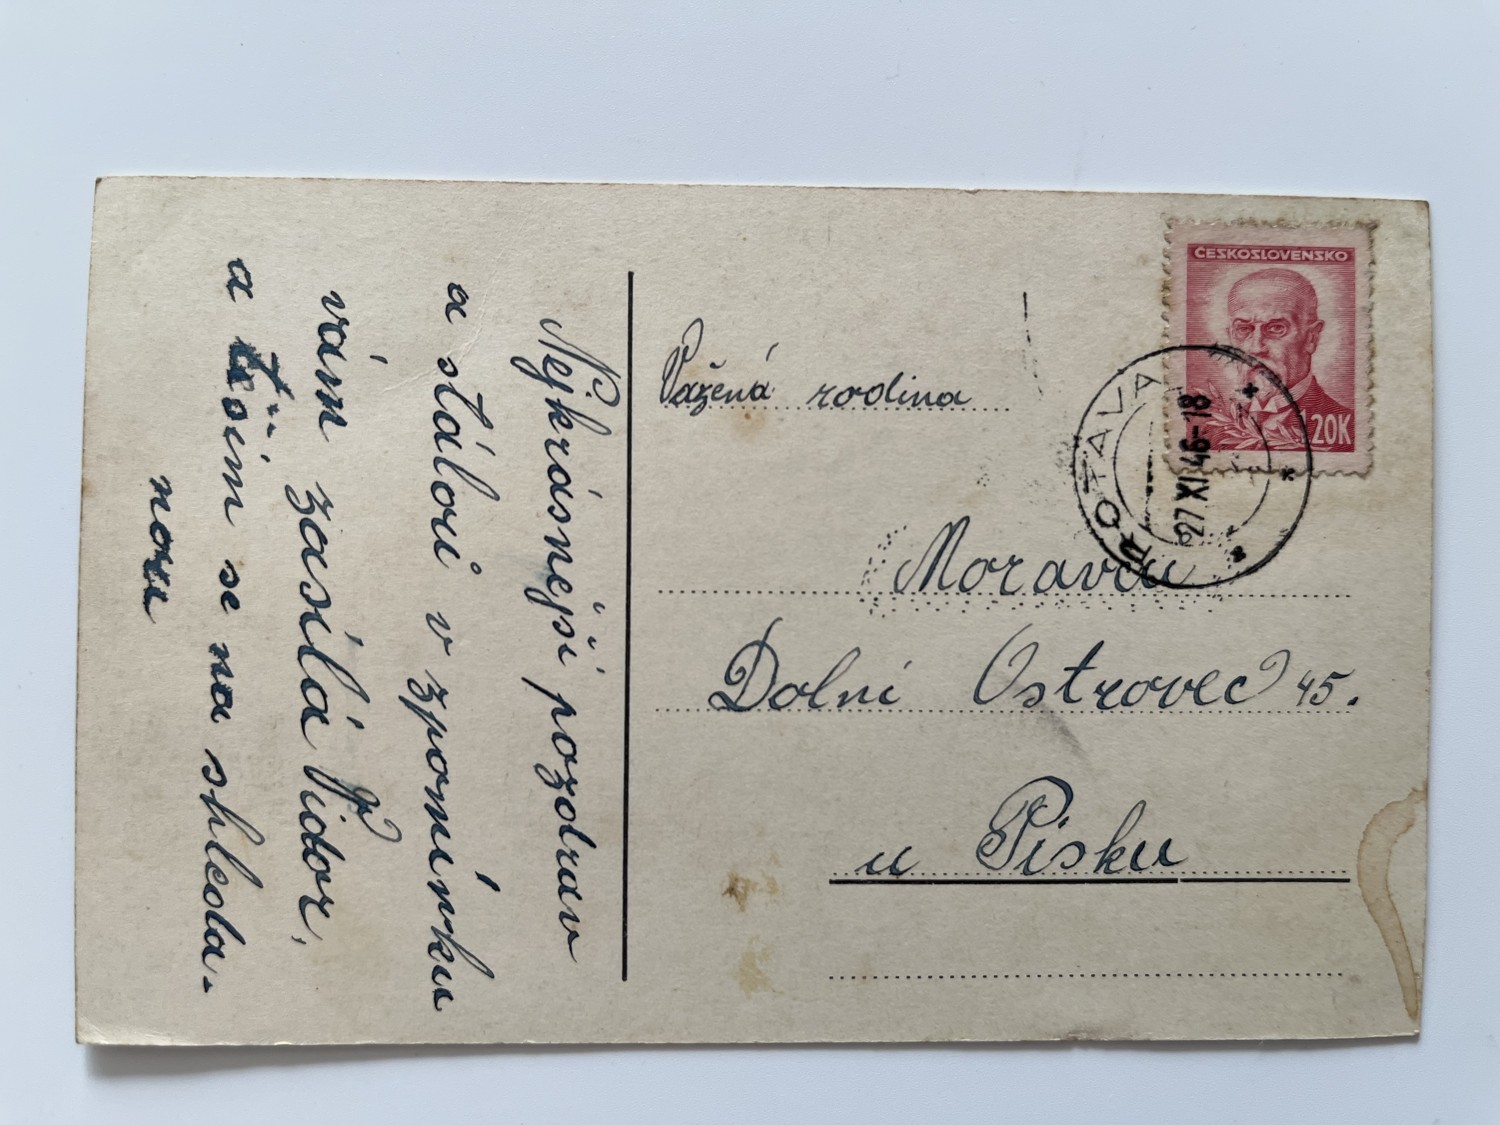 Nejkrásnejší pozdrav
a stálou v zpomínku
vám zasílá Vidor,
a těším se na shleda-
nou
Vážená rodina
Moravcu
Dolní Ostrovec 45.
u Písku
ČESKOSLOVENSKO
1.20K
ROTAVA
27 XI 46-18